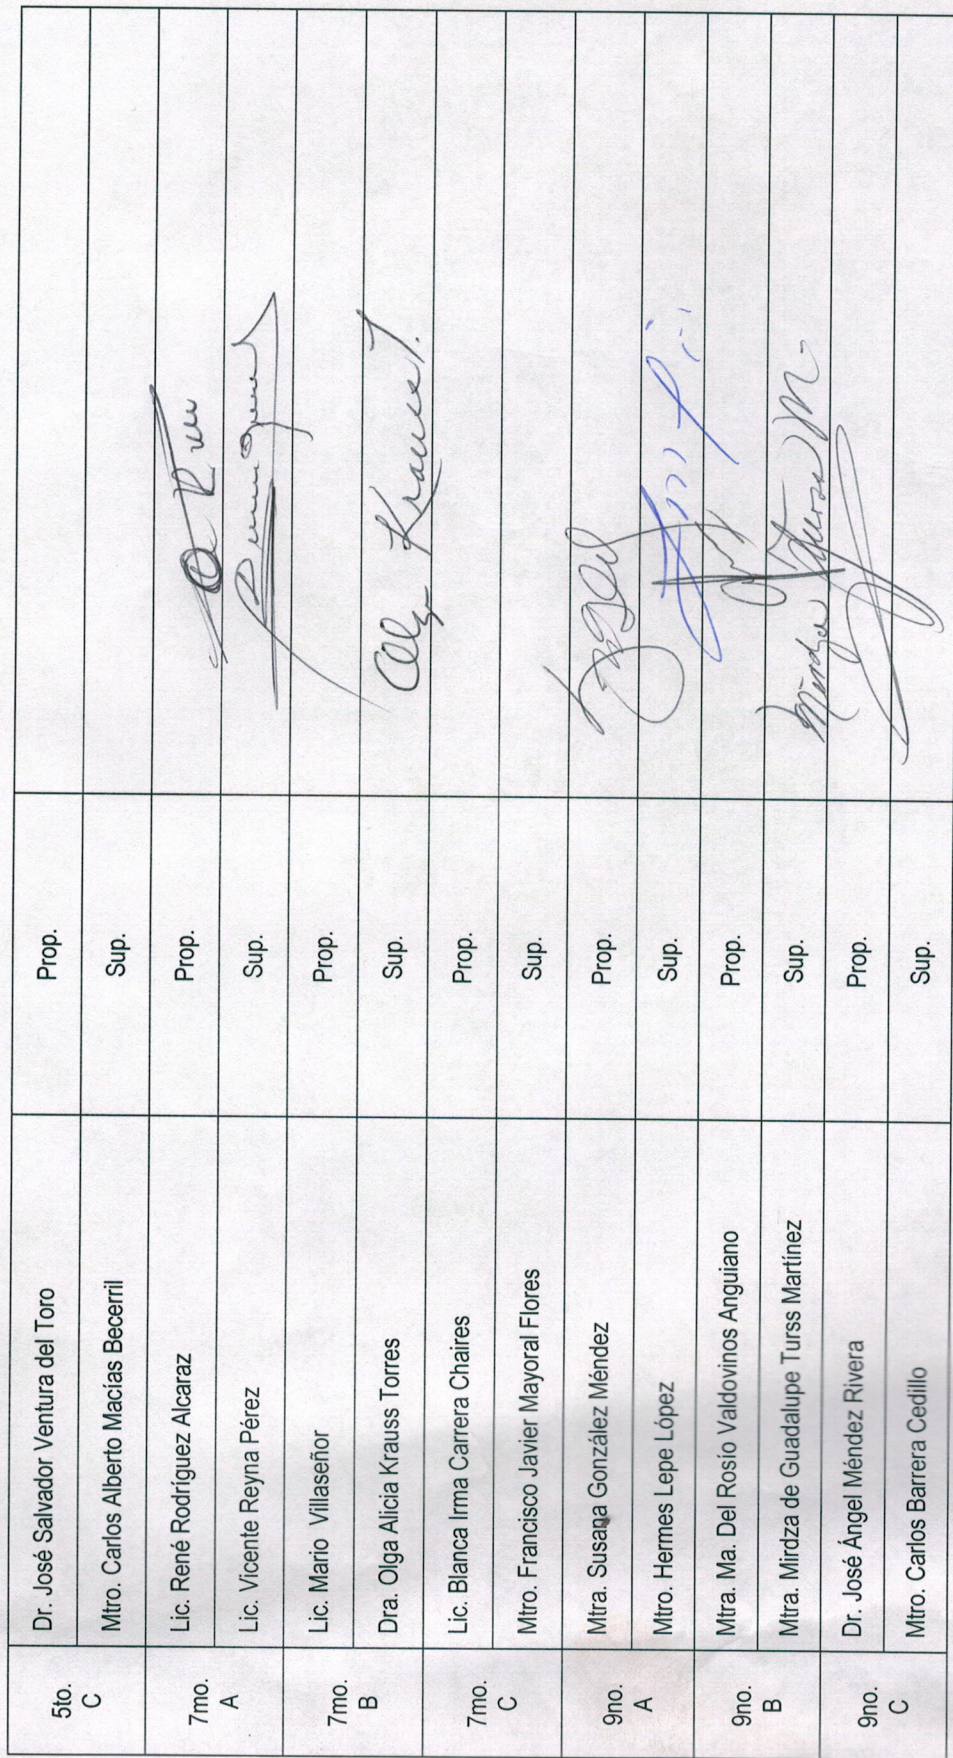 5to. C Dr. José Salvador Ventura del Toro Prop.
Mtro. Carlos Alberto Macías Becerril Sup.
7mo. A Lic. René Rodríguez Alcaraz Prop.
Lic. Vicente Reyna Pérez Sup.
7mo. B Lic. Mario Villaseñor Prop.
Dra. Olga Alicia Krauss Torres Sup. Olga Krauss T.
7mo. C Lic. Blanca Irma Carrera Chaires Prop.
Mtro. Francisco Javier Mayoral Flores Sup.
9no. A Mtra. Susana González Méndez Prop.
Mtro. Hermes Lepe López Sup.
9no. B Mtra. Ma. Del Rosío Valdovinos Anguiano Prop.
Mtra. Mirdza de Guadalupe Turss Martínez Sup. Mirdza Turss M.
9no. C Dr. José Ángel Méndez Rivera Prop.
Mtro. Carlos Barrera Cedillo Sup.